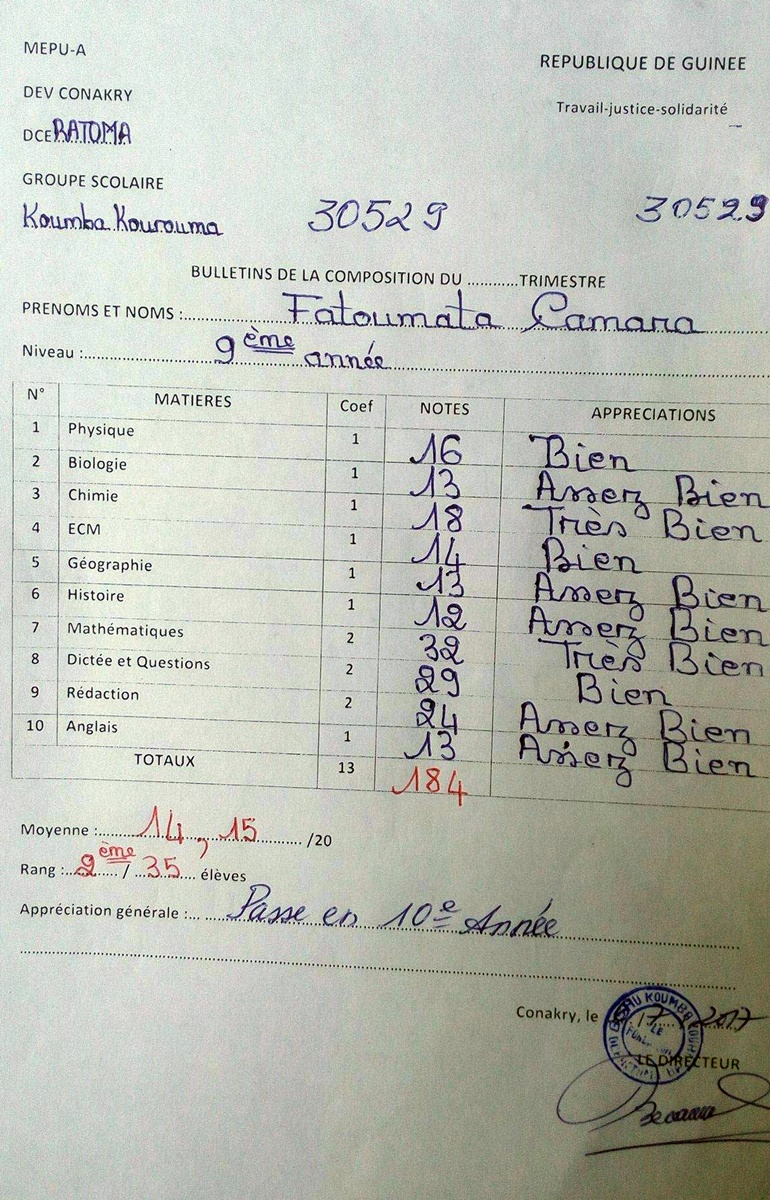 MEPU-A
REPUBLIQUE DE GUINEE
DEV CONAKRY
Travail-justice-solidarité
DCE RATOMA
GROUPE SCOLAIRE
Koumba Kourouma 30529 30529
BULLETINS DE LA COMPOSITION DU ............TRIMESTRE
PRENOMS ET NOMS : Fatoumata Camara
Niveau : 9ème année
N° MATIERES Coef NOTES APPRECIATIONS
1 Physique 1 16 Bien
2 Biologie 1 13 Assez Bien
3 Chimie 1 18 Très Bien
4 ECM 1 14 Bien
5 Géographie 1 13 Assez Bien
6 Histoire 1 12 Assez Bien
7 Mathématiques 2 32 Très Bien
8 Dictée et Questions 2 29 Bien
9 Rédaction 2 24 Assez Bien
10 Anglais 1 13 Assez Bien
TOTAUX 13 184
Moyenne : 14,15 /20
Rang : 2ème / 35 élèves
Appréciation générale : Passe en 10e Année
Conakry, le 2017
LE DIRECTEUR